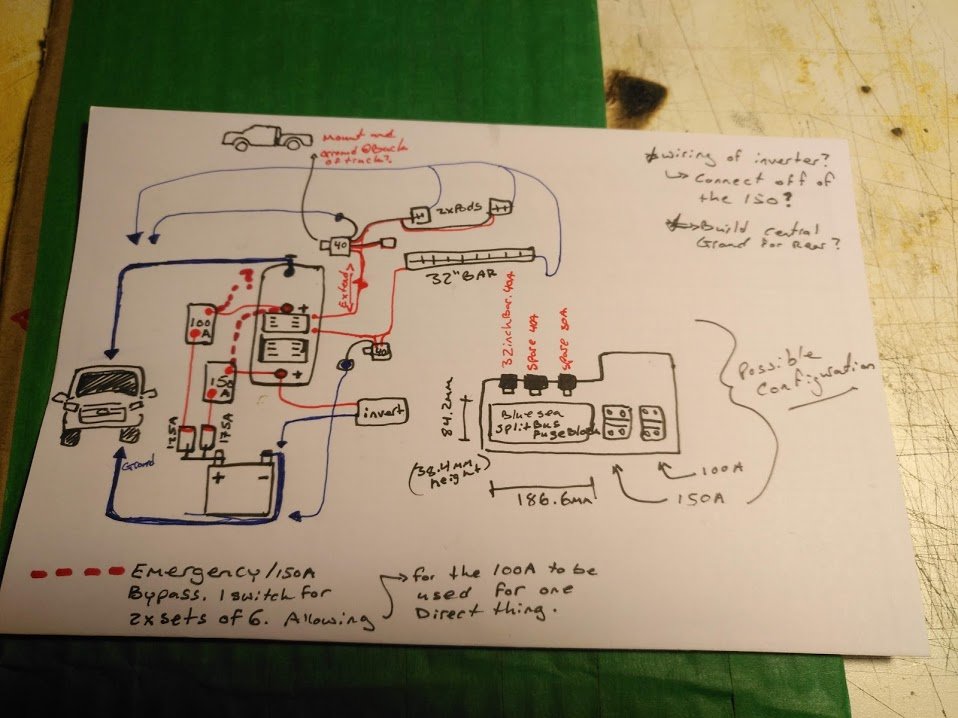 Mount and
Ground @Back
of truck?
*wiring of inverter?
↳ Connect off of
the 150?
*→Build central
Grond for Rear?
2xPods
40
32"BAR
Extend
+
100
A
40
150
A
+
invert
125A
175A
Ground
+ -
32inchBar.40A
Spare 40A
Spare 30A
84.2mm
Bluesea
SplitBus
FuseBlock
(38.4mm
height)
186.6mm
100A
150A
Possible
Configuration
Emergency/150A
Bypass. 1 switch for
2x sets of 6. Allowing
for the 100A to be
used for one
Direct thing.